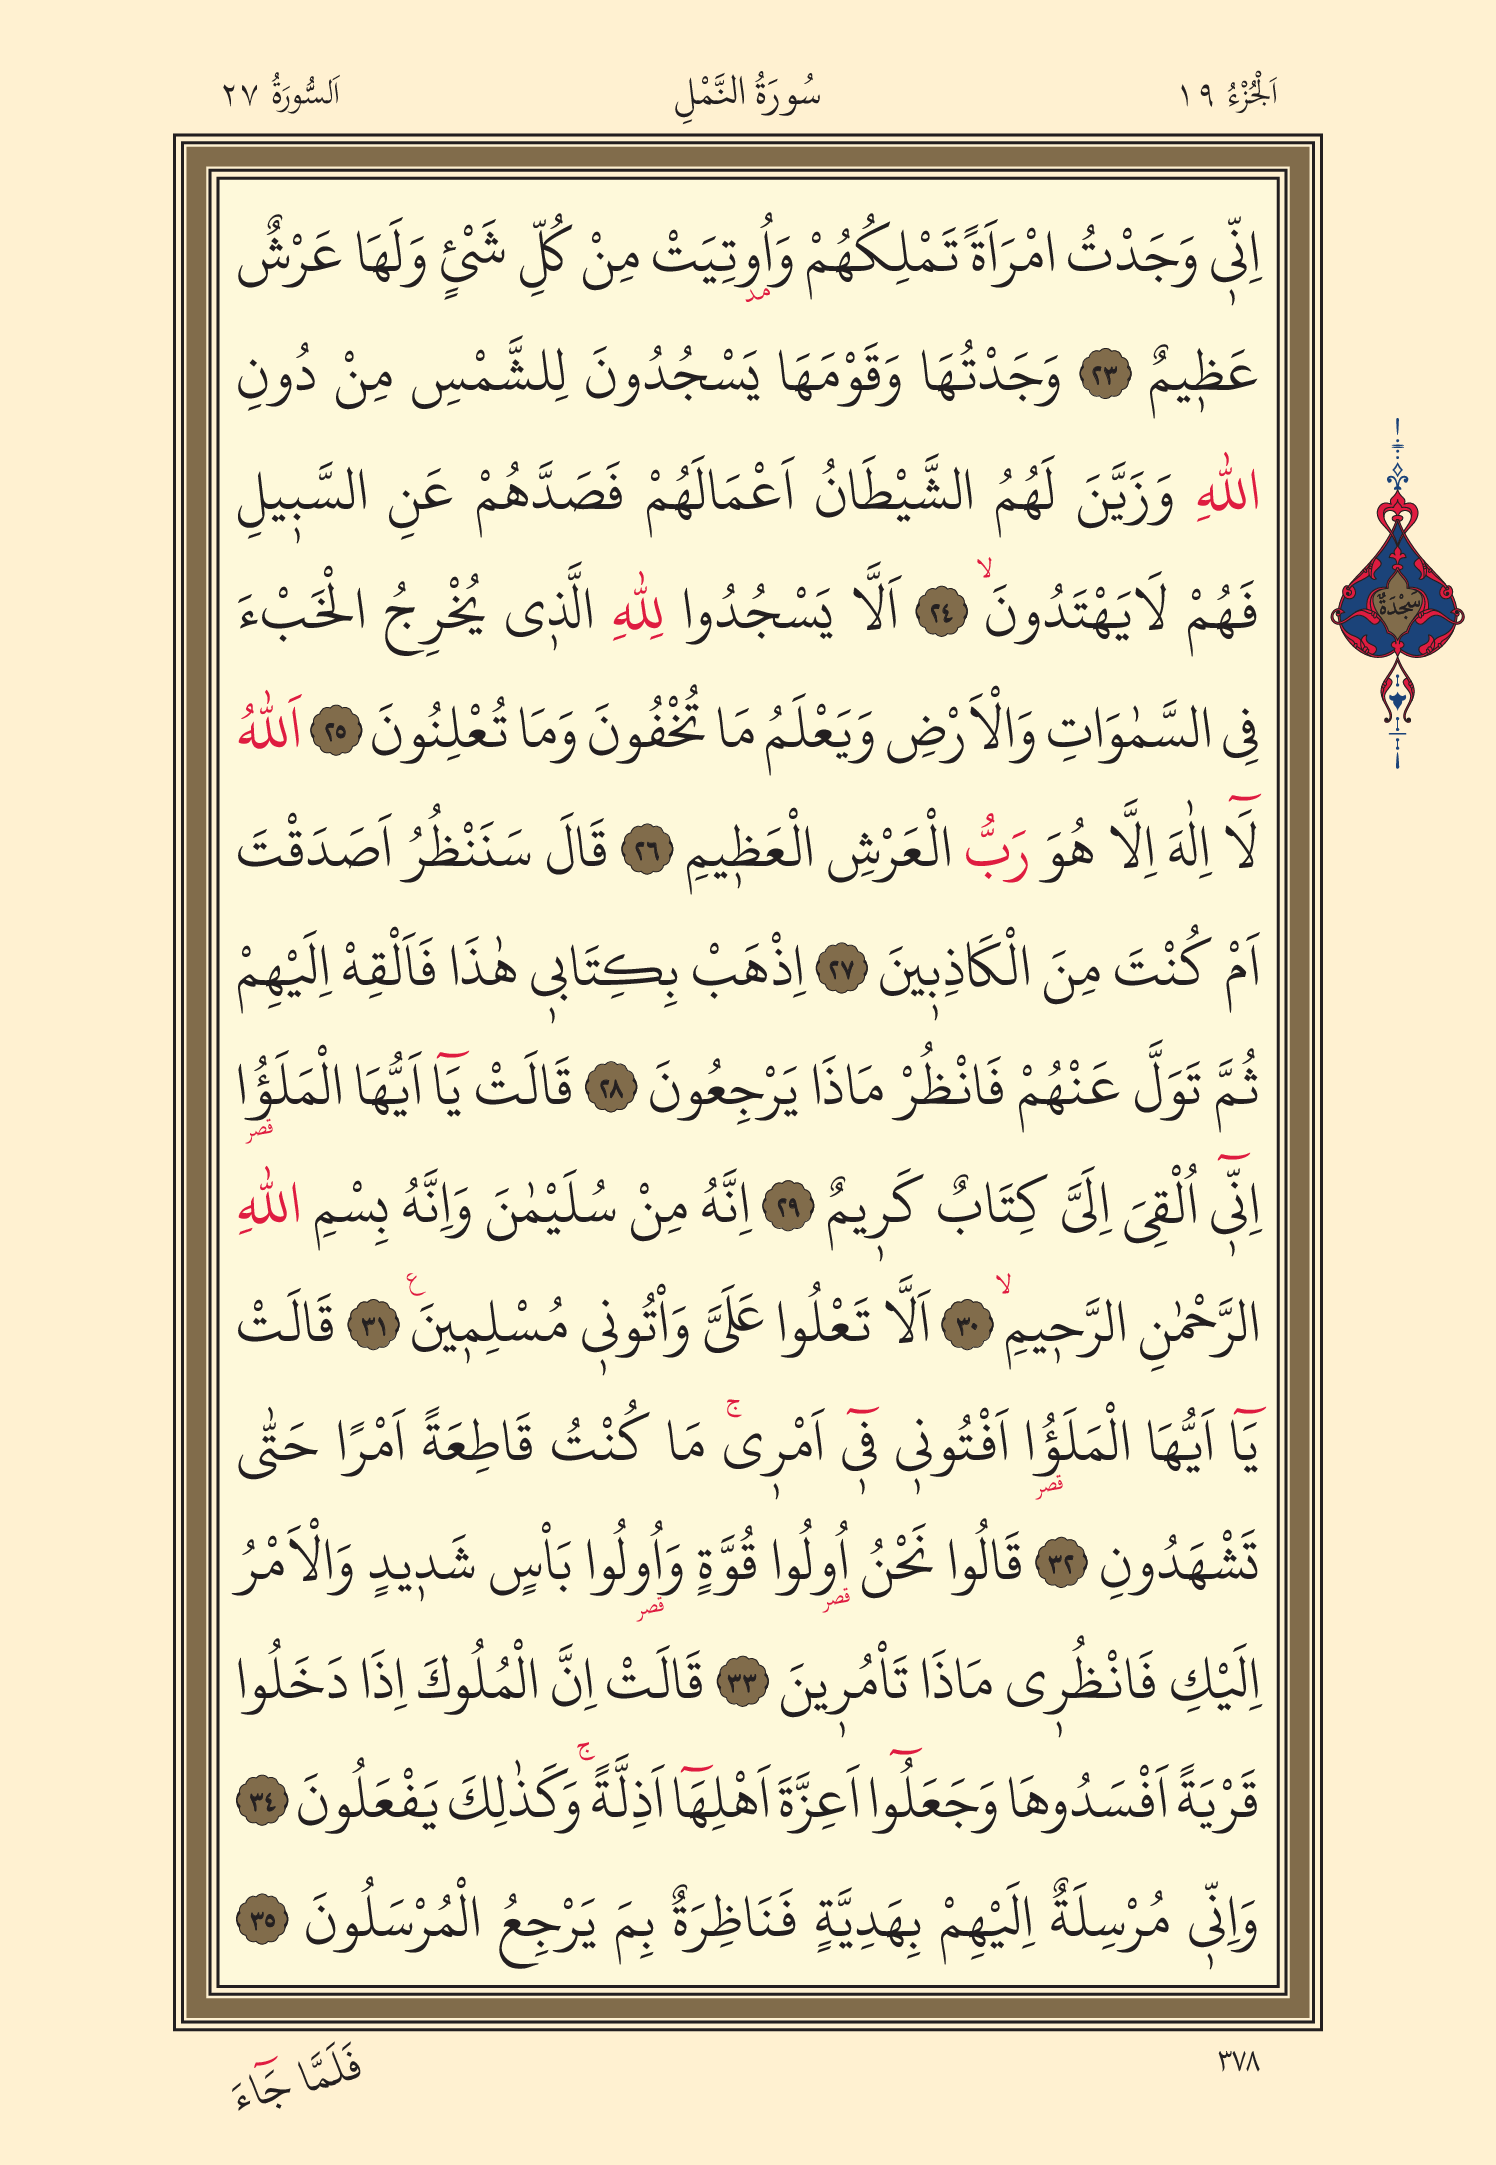 اَلْجُزْءُ ١٩
سُورَةُ النَّمْلِ
اَلسُّورَةُ ٢٧
اِنّ۪ي وَجَدْتُ امْرَاَةً تَمْلِكُهُمْ وَاُو۫تِيَتْ مِنْ كُلِّ شَيْءٍ وَلَهَا عَرْشٌ
مد
عَظ۪يمٌ ٢٣ وَجَدْتُهَا وَقَوْمَهَا يَسْجُدُونَ لِلشَّمْسِ مِنْ دُونِ
اللّٰهِ وَزَيَّنَ لَهُمُ الشَّيْطَانُ اَعْمَالَهُمْ فَصَدَّهُمْ عَنِ السَّب۪يلِ
فَهُمْ لَا يَهْتَدُونَۙ ٢٤ اَلَّا يَسْجُدُوا لِلّٰهِ الَّذ۪ى يُخْرِجُ الْخَبْءَ
سَجْدَةٌ
فِى السَّمٰوَاتِ وَالْاَرْضِ وَيَعْلَمُ مَا تُخْفُونَ وَمَا تُعْلِنُونَ ٢٥ اَللّٰهُ
لَٓا اِلٰهَ اِلَّا هُوَ رَبُّ الْعَرْشِ الْعَظ۪يمِ ٢٦ قَالَ سَنَنْظُرُ اَصَدَقْتَ
اَمْ كُنْتَ مِنَ الْكَاذِب۪ينَ ٢٧ اِذْهَبْ بِكِتَاب۪ي هٰذَا فَاَلْقِهْ اِلَيْهِمْ
ثُمَّ تَوَلَّ عَنْهُمْ فَانْظُرْ مَاذَا يَرْجِعُونَ ٢٨ قَالَتْ يَٓا اَيُّهَا الْمَلَؤُا
قصر
اِنّ۪ٓي اُلْقِيَ اِلَيَّ كِتَابٌ كَر۪يمٌ ٢٩ اِنَّهُ مِنْ سُلَيْمٰنَ وَاِنَّهُ بِسْمِ اللّٰهِ
الرَّحْمٰنِ الرَّح۪يمِۙ ٣٠ اَلَّا تَعْلُوا عَلَيَّ وَاْتُون۪ي مُسْلِم۪ينَ ع ٣١ قَالَتْ
يَٓا اَيُّهَا الْمَلَؤُا اَفْتُون۪ي ف۪ٓي اَمْر۪ىۚ مَا كُنْتُ قَاطِعَةً اَمْرًا حَتّٰى
قصر
تَشْهَدُونِ ٣٢ قَالُوا نَحْنُ اُولُوا قُوَّةٍ وَاُولُوا بَاْسٍ شَد۪يدٍ وَالْاَمْرُ
قصر قصر
اِلَيْكِ فَانْظُر۪ى مَاذَا تَاْمُر۪ينَ ٣٣ قَالَتْ اِنَّ الْمُلُوكَ اِذَا دَخَلُوا
قَرْيَةً اَفْسَدُوهَا وَجَعَلُٓوا اَعِزَّةَ اَهْلِهَٓا اَذِلَّةًۚ وَكَذٰلِكَ يَفْعَلُونَ ٣٤
وَاِنّ۪ي مُرْسِلَةٌ اِلَيْهِمْ بِهَدِيَّةٍ فَنَاظِرَةٌ بِمَ يَرْجِعُ الْمُرْسَلُونَ ٣٥
٣٧٨
فَلَمَّا جَٓاءَ